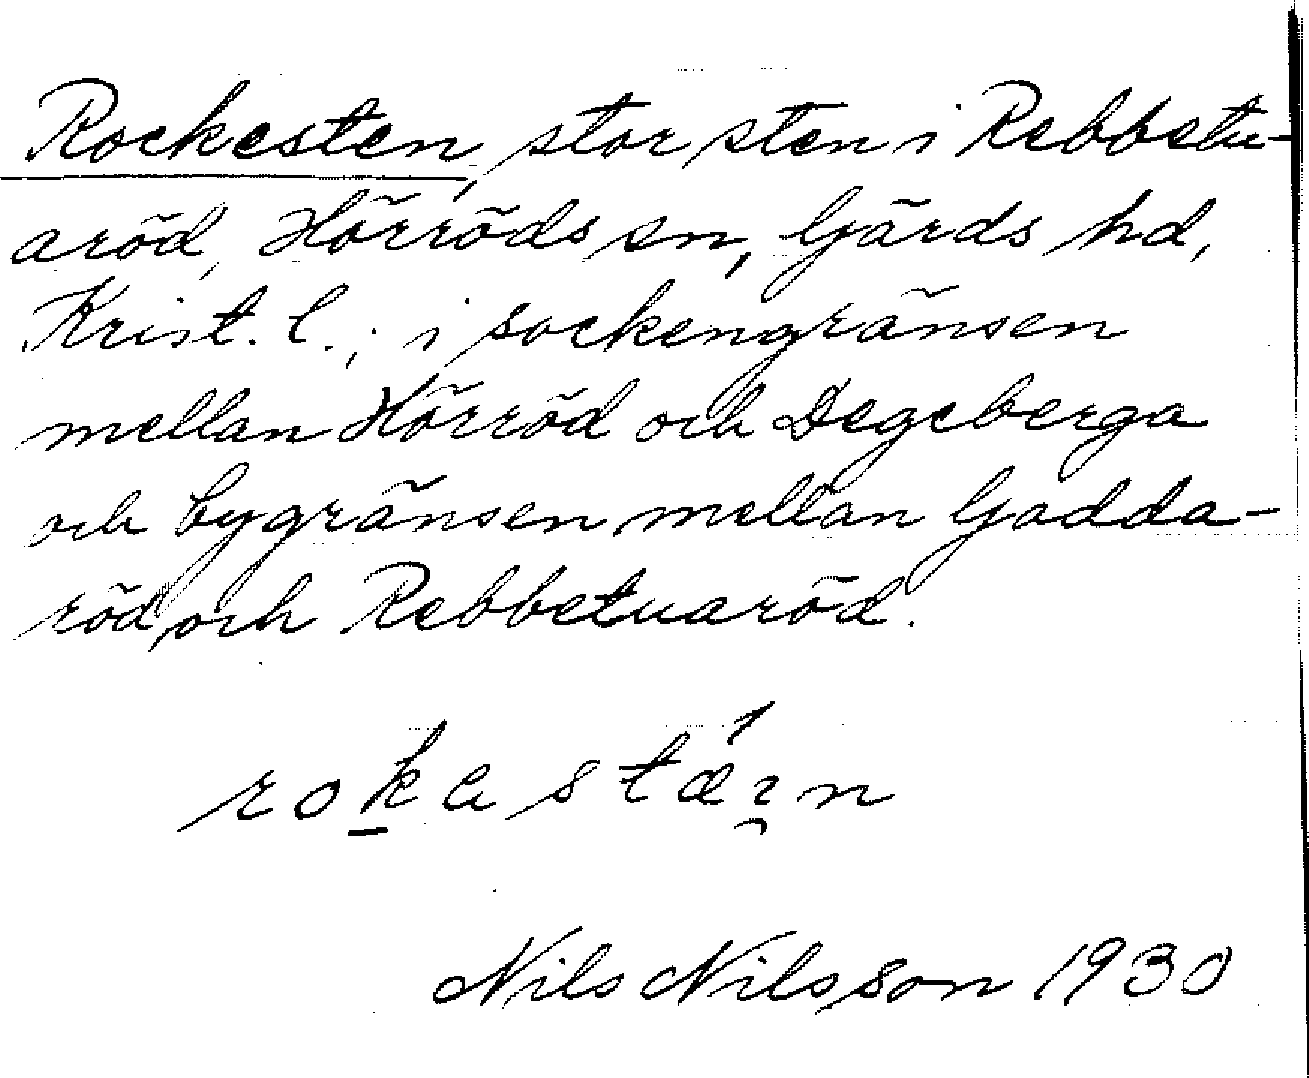 Rockesten, stor sten i Rebbetu-
aröd, Hörröds sn, Gärds hd,
Krist. l.; i sockengränsen
mellan Hörröd och Degeberga
och bygränsen mellan Gadda-
röd och Rebbetuaröd.
Nils Nilsson 1930